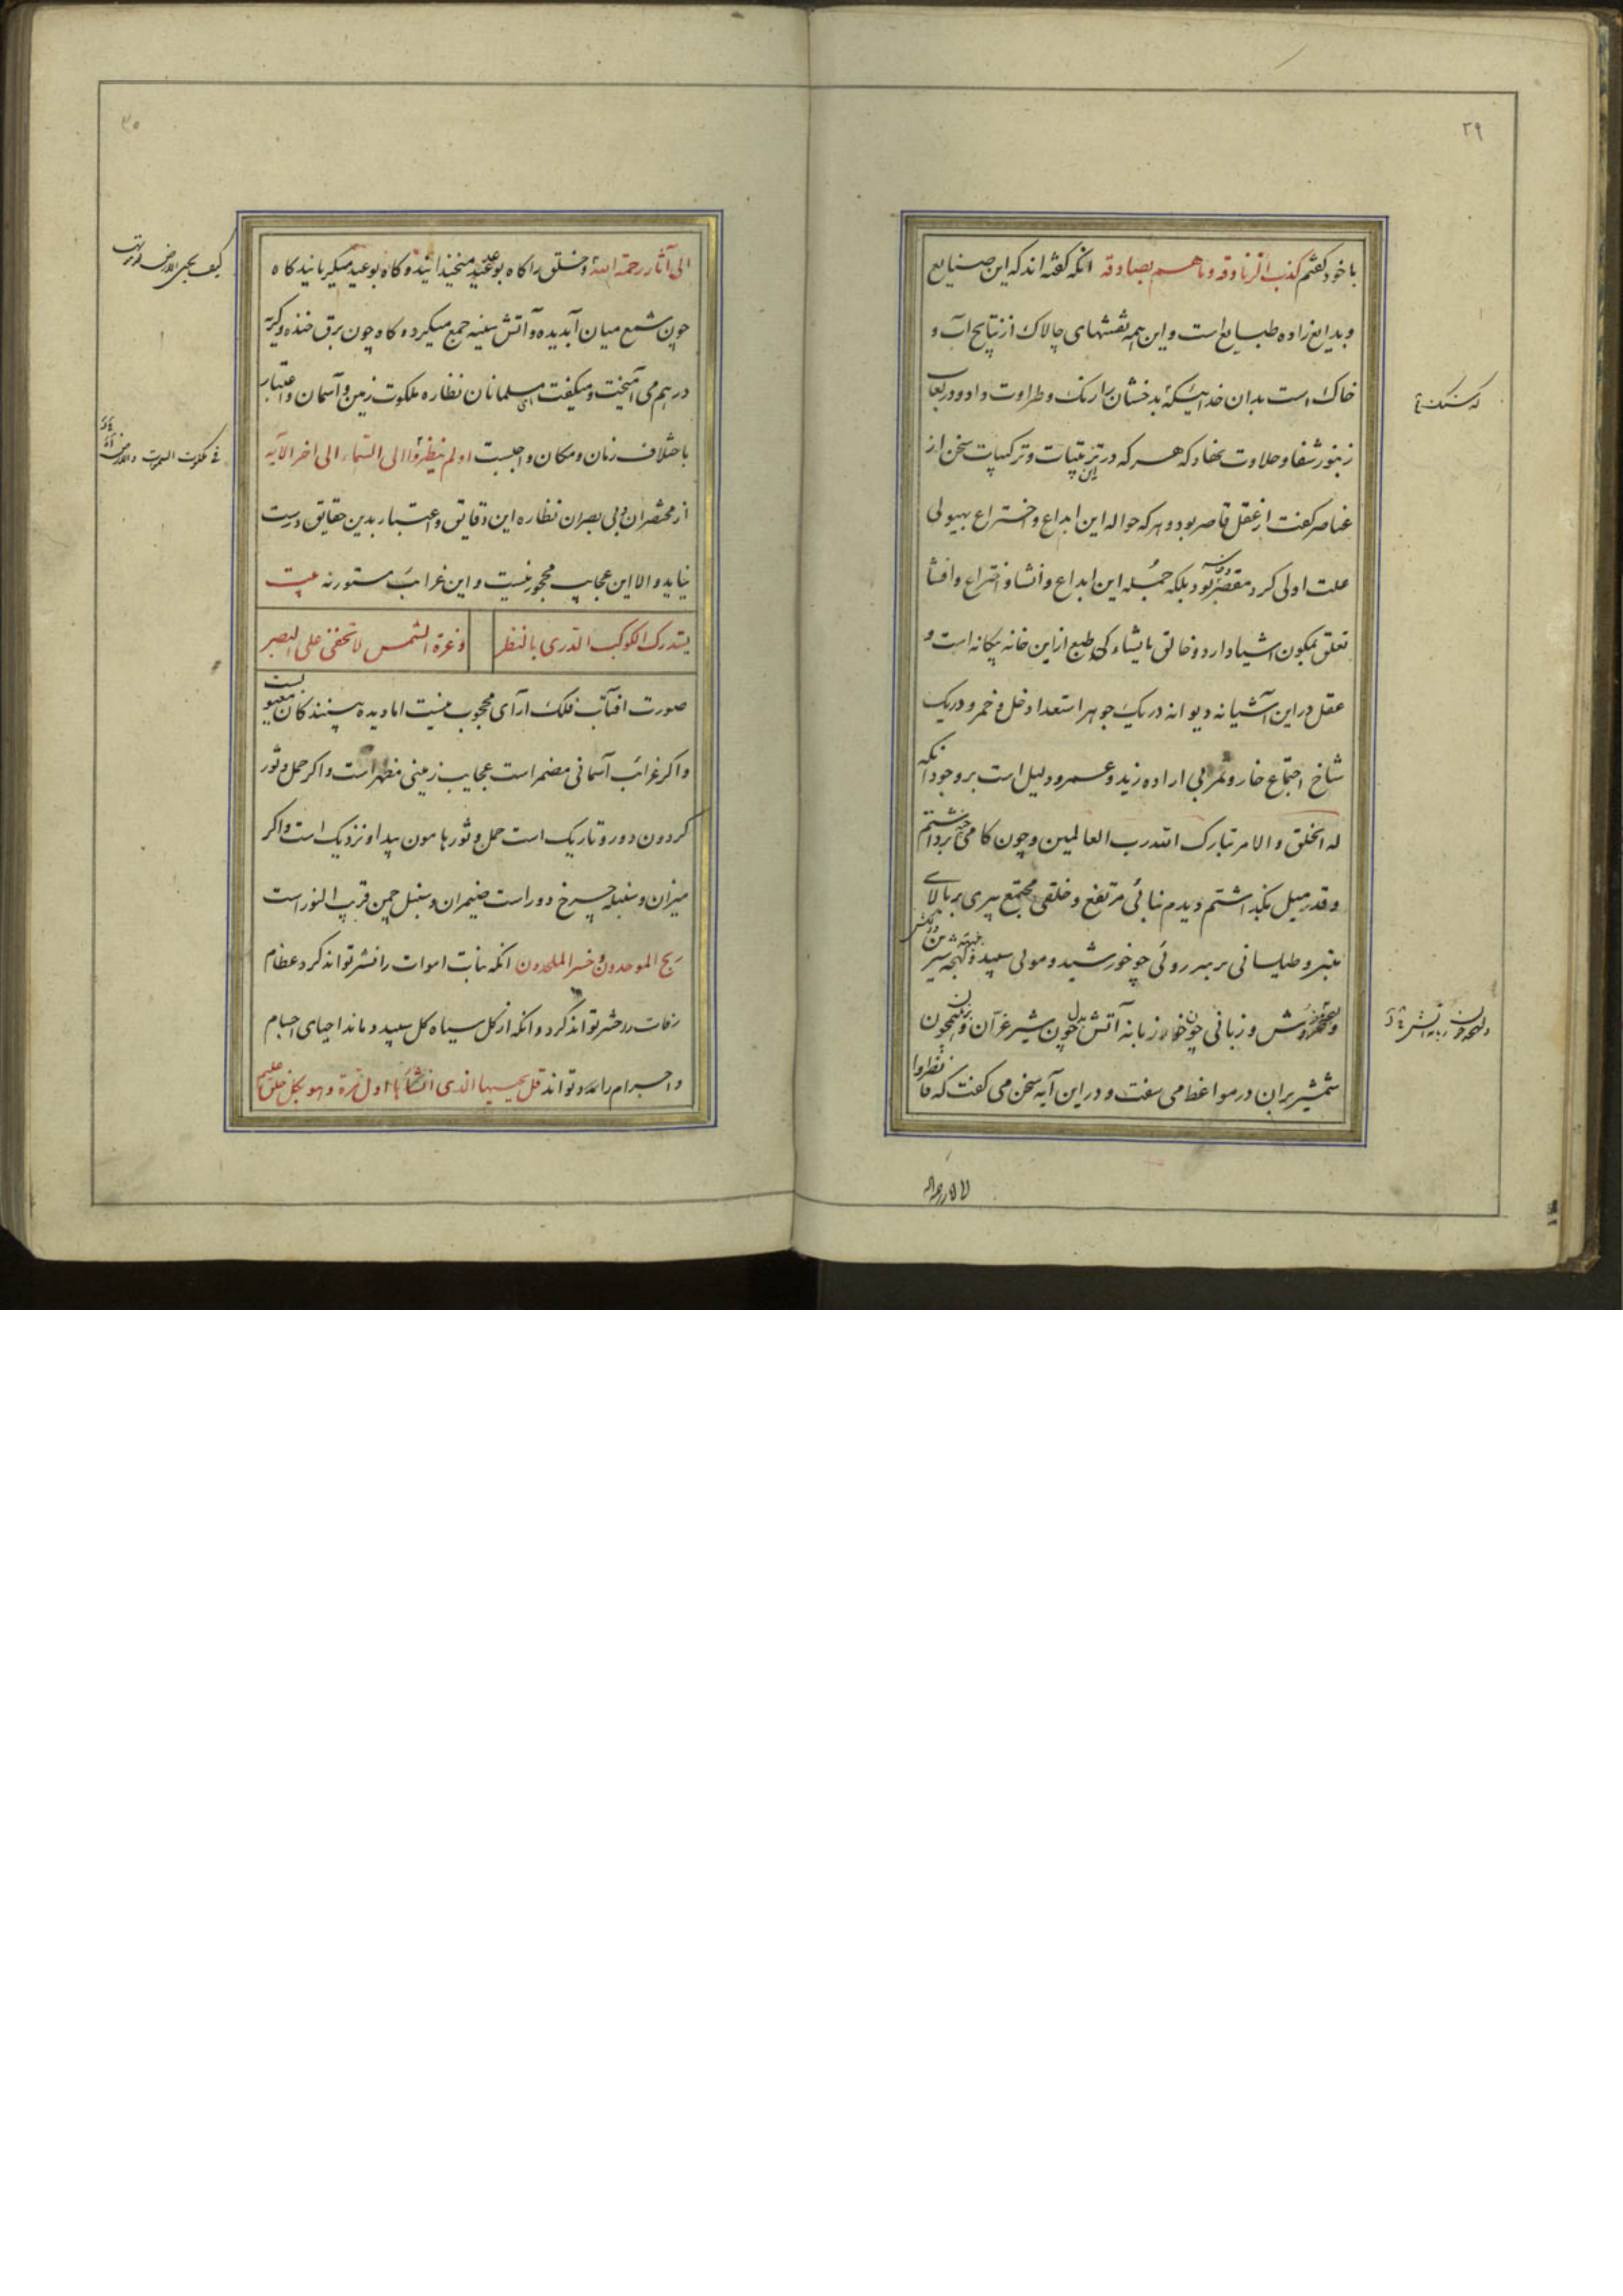 ۲۹
با خود کفتم کذب الزنادقه وما هم بصادقه انکه کفته اند که این صنایع
وبدایع زاده طبایع است و این همه نقشهای چالاک از نتایج آب و
خاک است بدان خدائیکه بدخشان را رنک و طراوت داد و در لعاب
زنبور شفا و حلاوت نهاد که هر که در ترتیبات و ترکیبات سخن از
عناصر کفت از عقل قاصر بود و هر که حواله این ابداع و اختراع بهیولی
علت اولی کرد مقصر بود بلکه جمله این ابداع و انشا و اختراع و افشا
تعلق بمکون اشیا دارد و خالق مایشاء که طبع از این خانه بیکانه است و
عقل در این آشیانه دیوانه در یک جوهر استعداد خل و خمر و در یک
شاخ اجتماع خار و تمر بی اراده زید و عمرو دلیل است بر وجود انکه
له الخلق و الامر تبارک الله رب العالمین و چون کامی برداشتم
و قدر میل بکذاشتم دیدم بنائی مرتفع و خلقی مجتمع پیری بر بالای
منبر و طیلسانی بر سر روئی چو خورشید و موئی سپید
زبانه آتش چون شیر غران
شمشیر بران در مواعظ می سفت و در این آیه سخن می کفت که فانظروا
الی آثار رحمة الله و خلق را کاه بوعد میخندانید و کاه بوعید میکریانید کاه
چون شمع میان آب دیده و آتش سینه جمع میکرد و کاه چون برق خنده و کریه
در هم می آمیخت و میکفت ای مسلمانان نظاره ملکوت زمین و آسمان و اعتبار
باختلاف زمان و مکان واجبست اولم ینظروا الی السماء الی اخر الآیه
از مختصران و بی بصران نظاره این دقایق و اعتبار بدین حقایق درست
نیاید و الا این عجایب محجور نیست و این غرائب مستور نه بیت
یستدرک الکوکب الدری بالنظر وغرة الشمس لا تخفی علی البصر
صورت افتاب فلک ارای محجوب نیست اما دیده بینندکان معیوبست
و اکر غرائب آسمانی مضمر است عجایب زمینی مظهر است و اکر حمل و ثور
کردون دور و تاریک است حمل و ثور هامون پیدا و نزدیک است و اکر
میزان و سنبله چرخ دور است ضیمران و سنبل چمن قریب النور است
ربح الموحدون و خسر الملحدون انکه نبات اموات را نشر تواند کرد عظام
رفات را حشر تواند کرد و انکه از کل سیاه کل سپید دماند احیای اجسام
و اجرام تواند قل یحییها الذی انشأها اول مرة وهو بکل خلق علیم